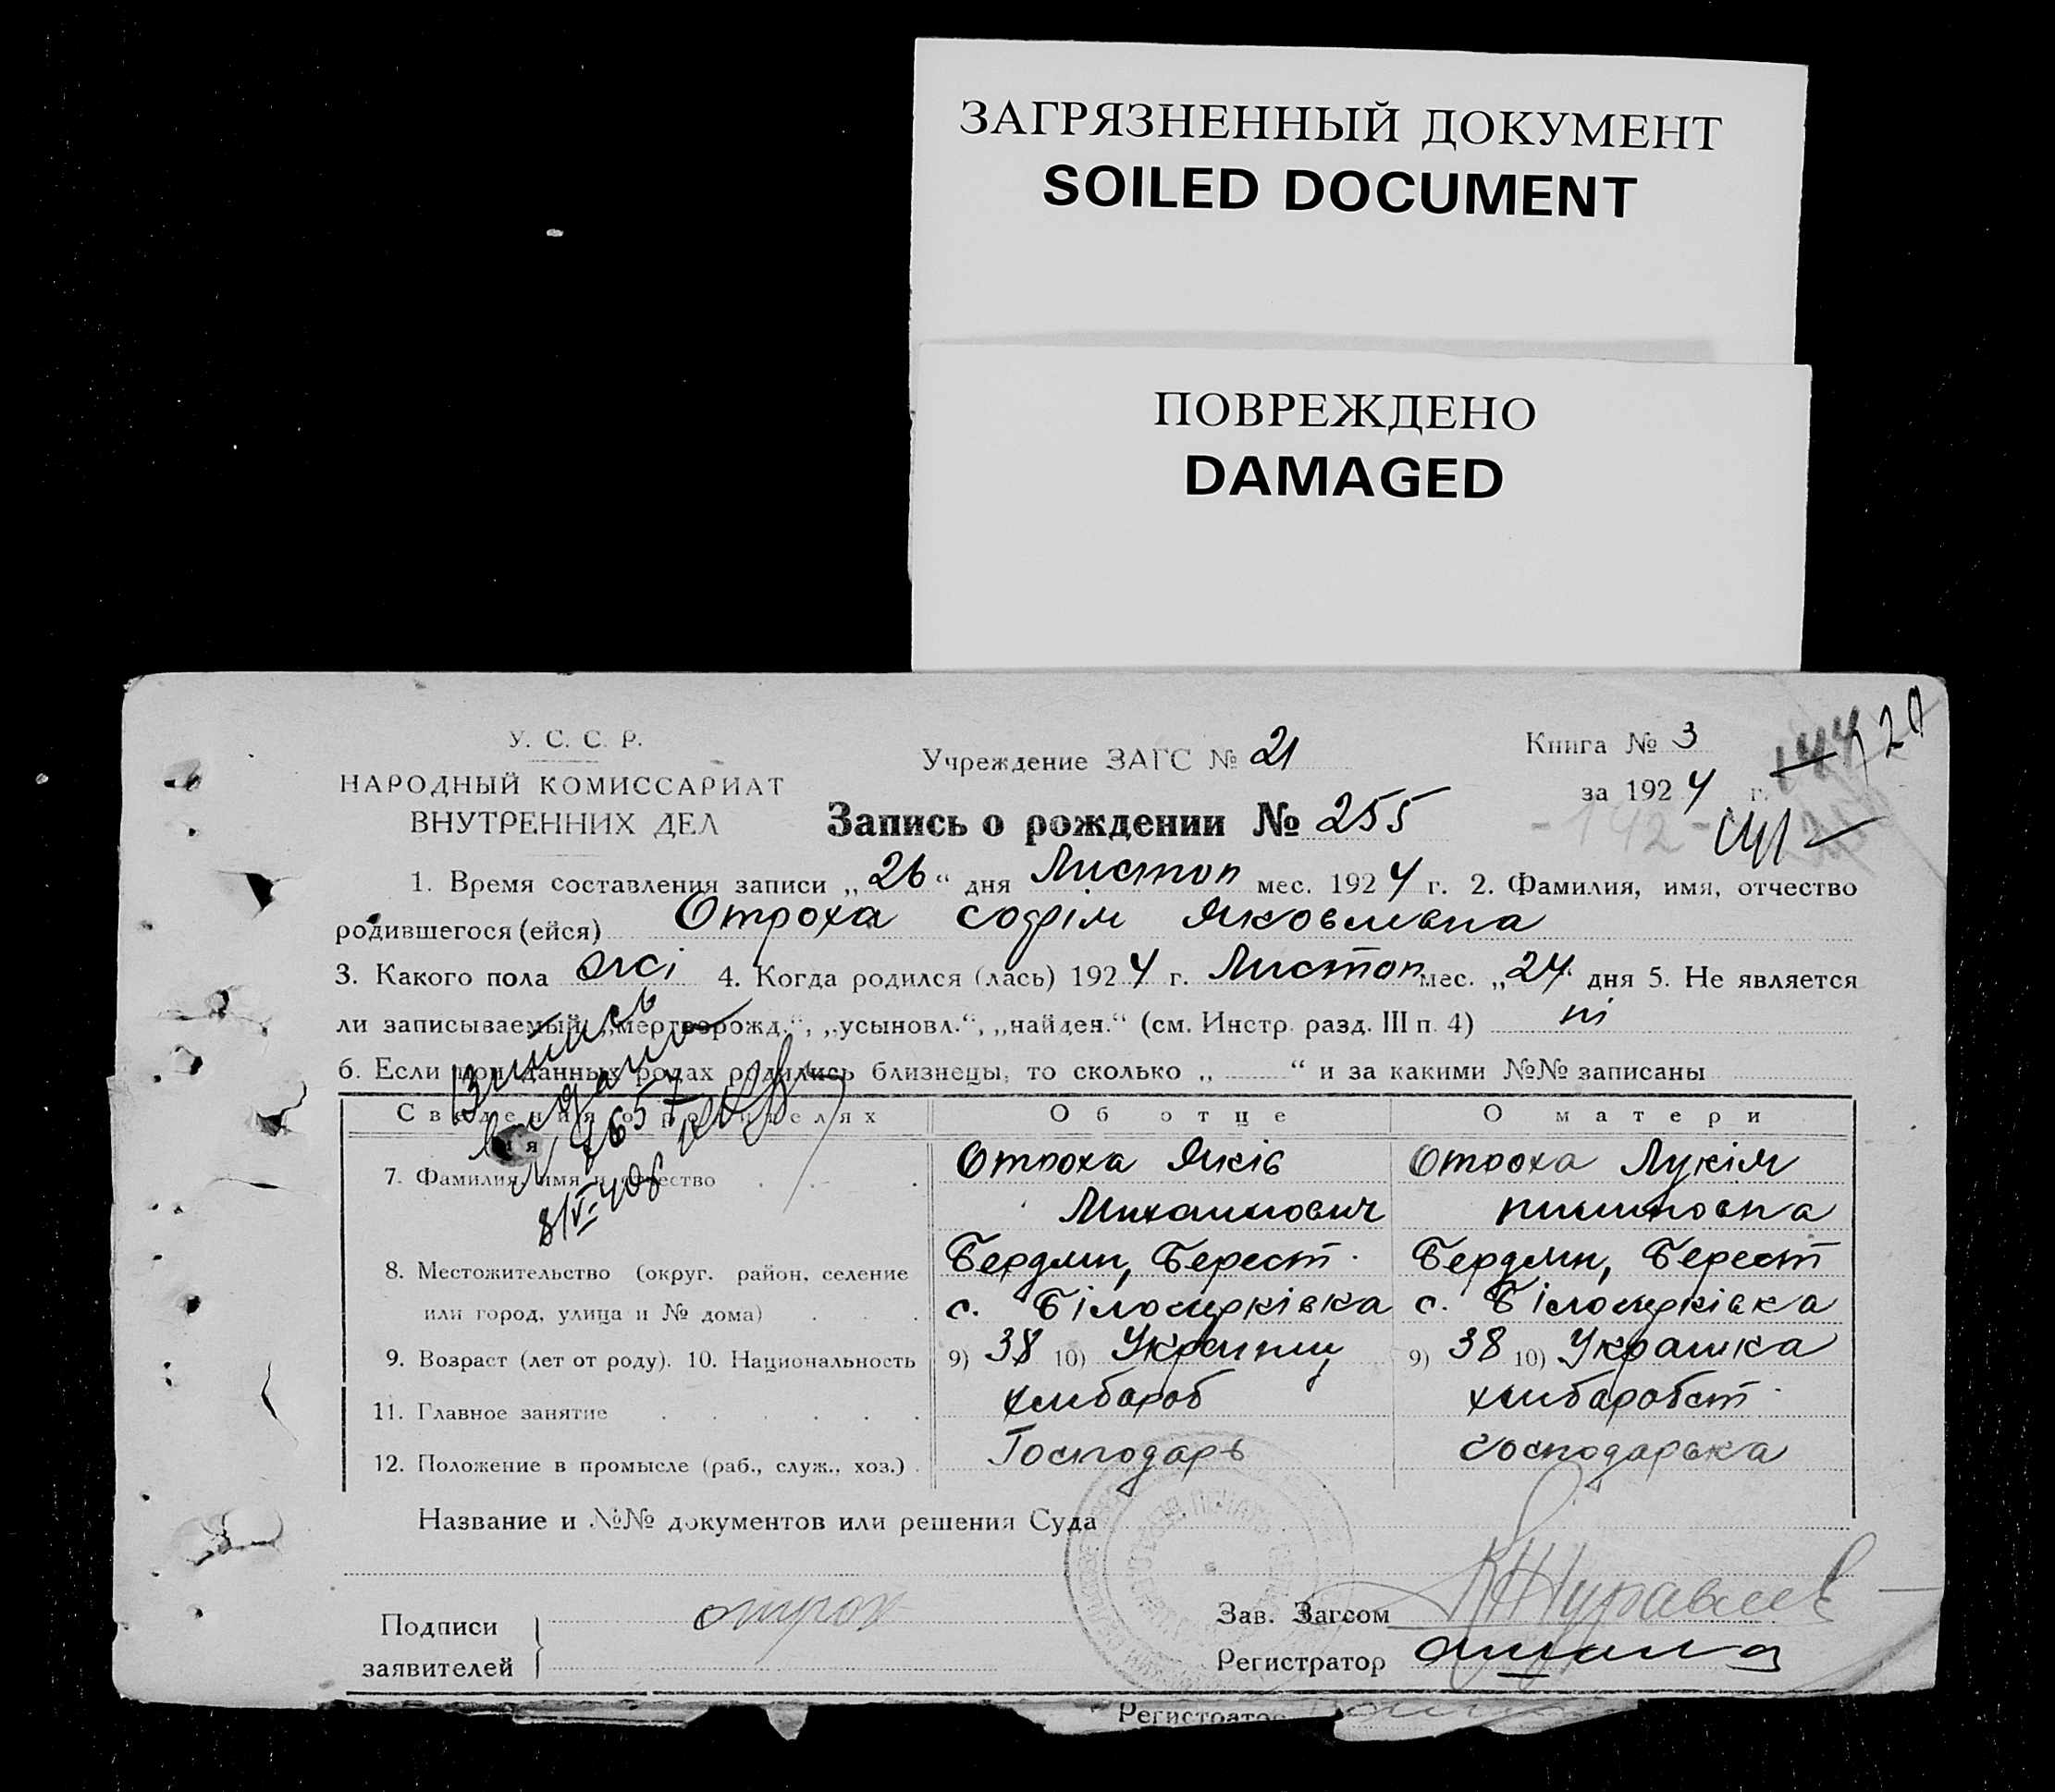 ЗАГРЯЗНЕННЫЙ ДОКУМЕНТ
SOILED DOCUMENT
ПОВРЕЖДЕНО
DAMAGED
У. С. С. Р.
НАРОДНЫЙ КОМИССАРИАТ
ВНУТРЕННИХ ДЕЛ
Учреждение ЗАГС № 21
Книга № 3
за 1924 г.
144
Запись о рождении № 255
- 192 -
1. Время составления записи „26“ дня Листоп мес. 1924 г. 2. Фамилия, имя, отчество
родившегося (ейся) Отроха Софія Яковлевна
3. Какого пола жсі 4. Когда родился (лась) 1924 г. Листоп мес. „24“ дня 5. Не является
ли записываемый „мертворожд.“, „усыновл.“, „найден.“ (см. Инстр. разд. III п. 4) ні
6. Если при данных родах родились близнецы, то сколько „ “ и за какими №№ записаны
Сведения о родителях Об отце О матери
7. Фамилия, имя и отчество Отроха Яків Отроха Лукія
Михаилович
8. Местожительство (округ. район, селение Бердян, Берест. Бердян, Берест
или город, улица и № дома) с. Білоцерківка с. Білоцерківка
9. Возраст (лет от роду). 10. Национальность 9) 38 10) Українец 9) 38 10) Українка
11. Главное занятие хлибороб хлиборобст.
12. Положение в промысле (раб., служ., хоз.) Господарь Господарька
Название и №№ документов или решения Суда
Подписи
заявителей
Зав. Загсом Журавлев
Регистратор
Регистратор